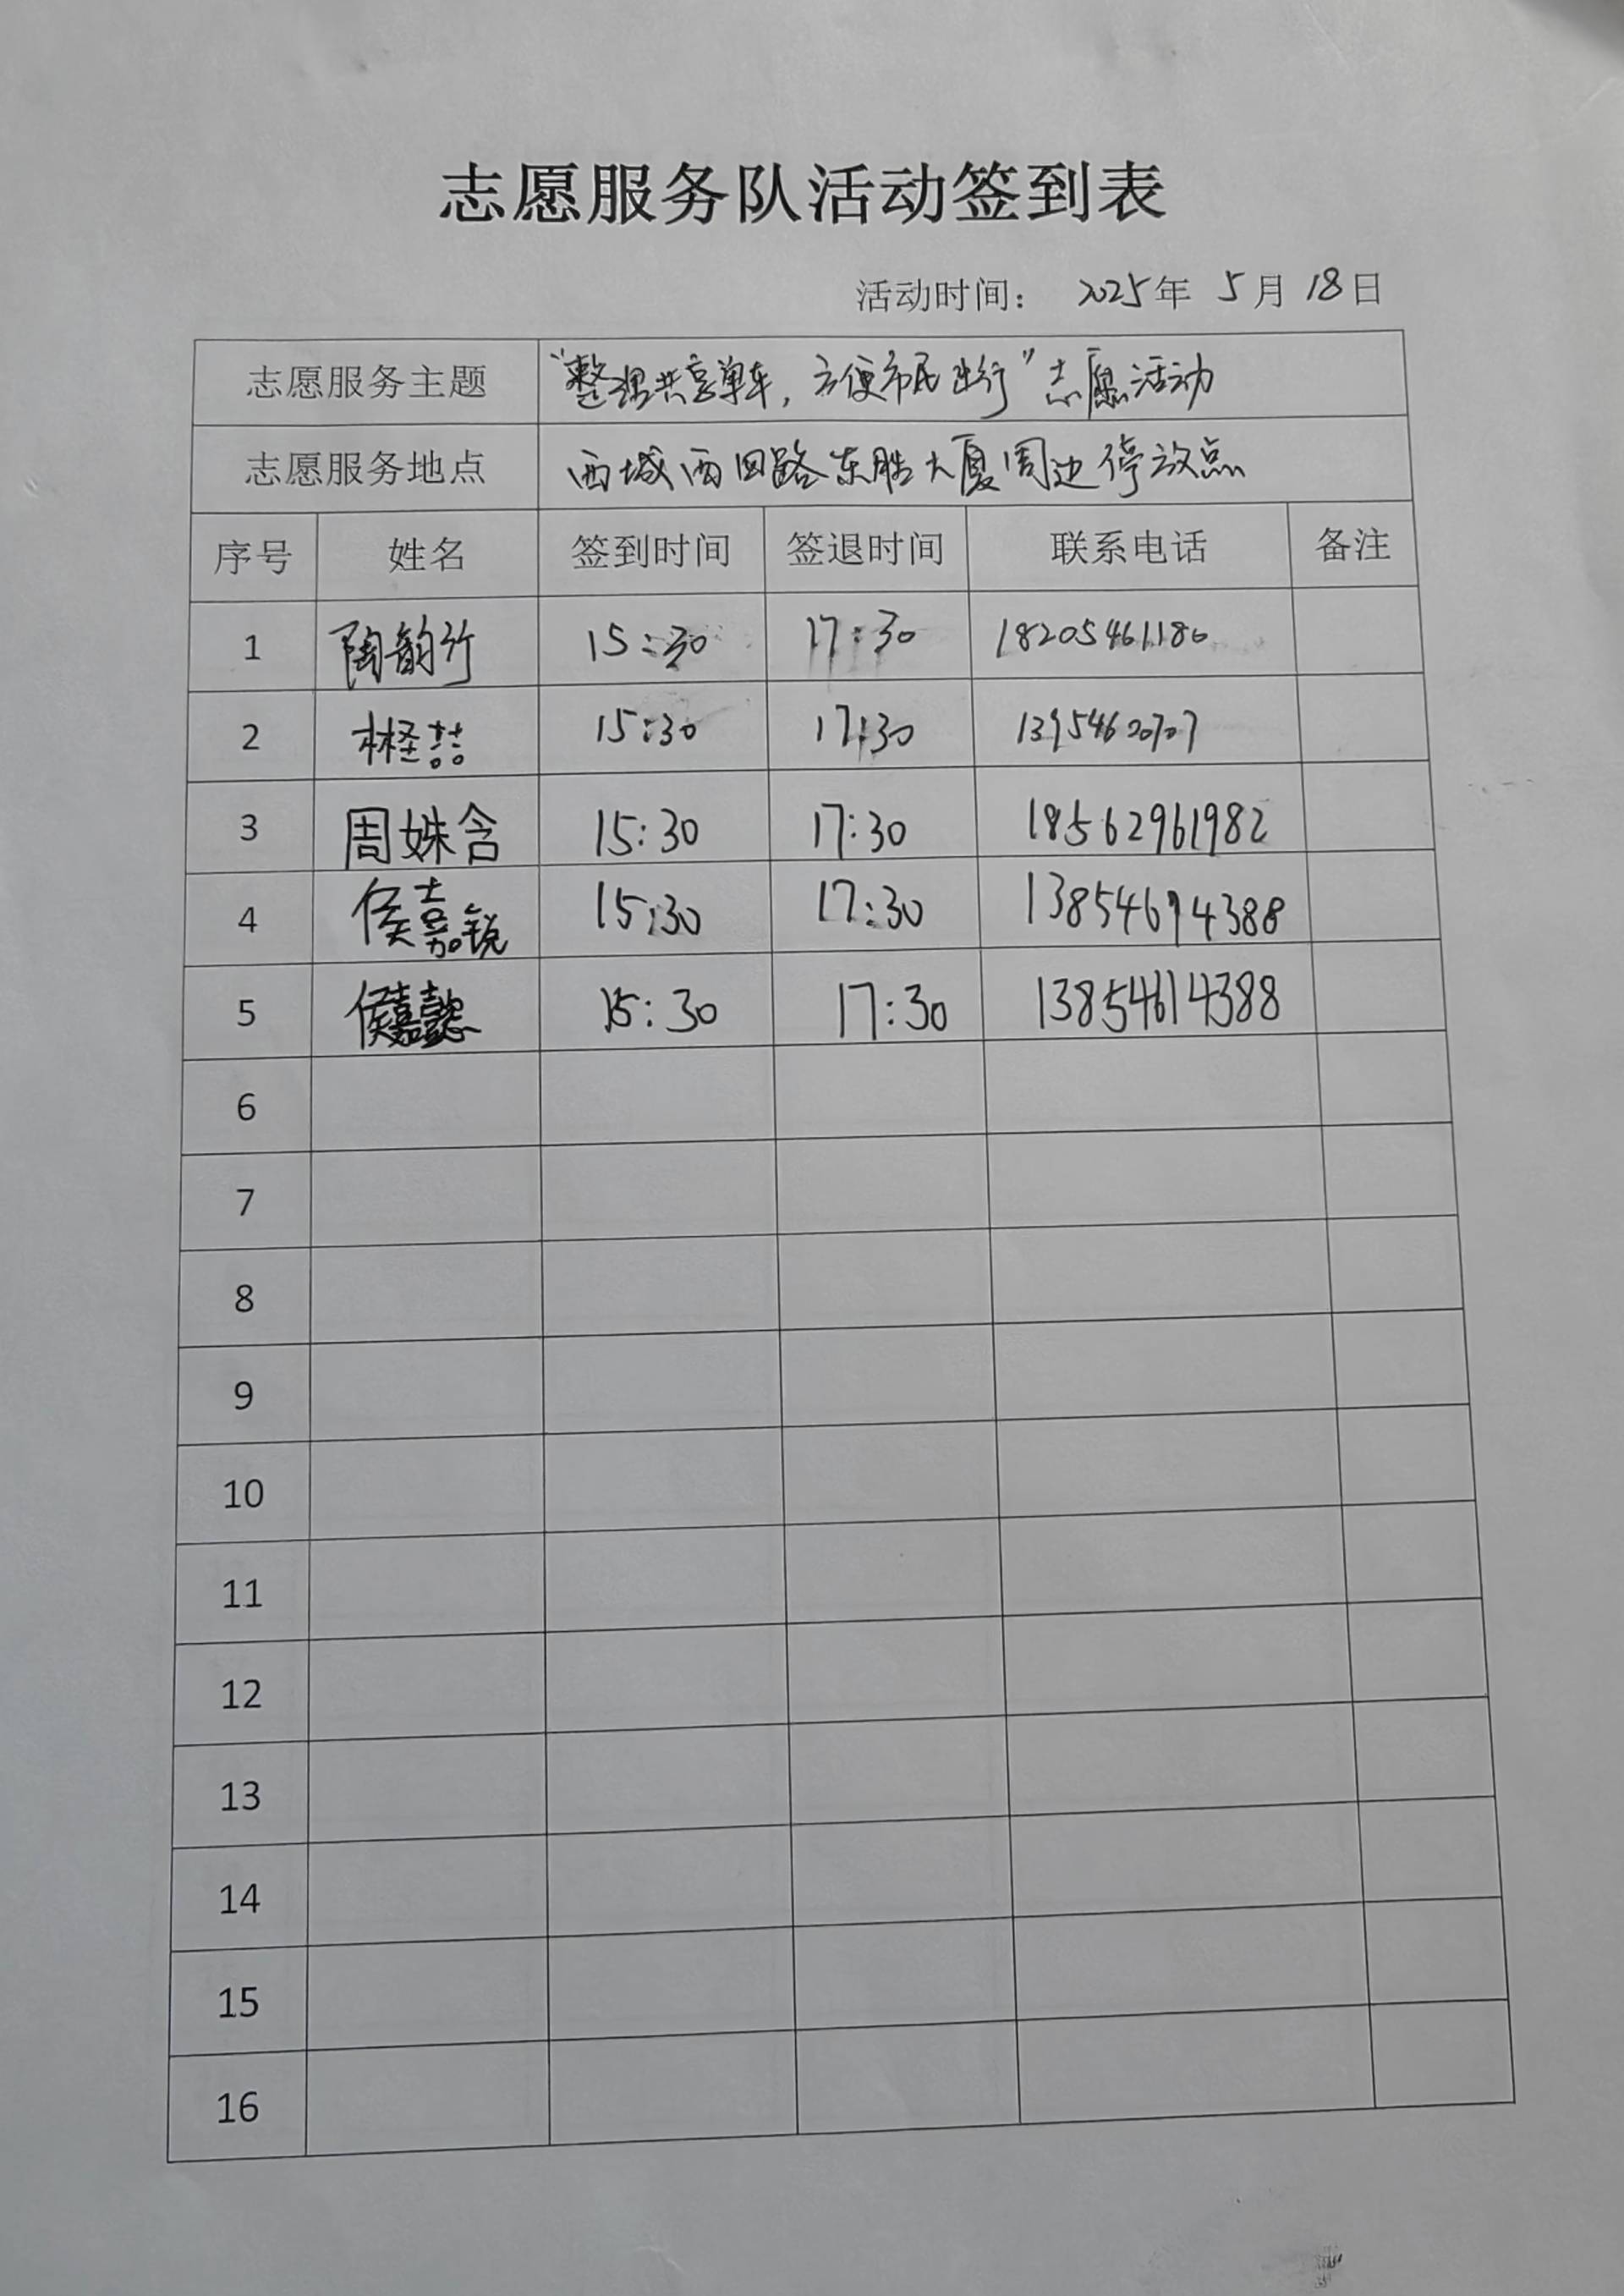 志愿服务队活动签到表
活动时间： 2025年 5月18日
志愿服务主题 “整理共享单车，方便市民出行”志愿活动
志愿服务地点 西城西四路东胜大厦周边停放点
序号 姓名 签到时间 签退时间 联系电话 备注
1 陶韵竹 15:30 17:30 18205461180
2 15:30 17:30
3 周姝含 15:30 17:30 18562961982
4 侯嘉锐 15:30 17:30 13854614388
5 侯嘉懿 15:30 17:30 13854614388
6
7
8
9
10
11
12
13
14
15
16